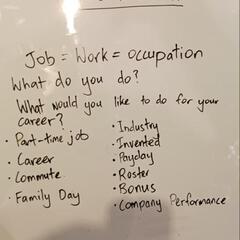 Job = Work = occupation
What do you do?
What would you like to do for your
career?
• Part-time job
• Career
• Commute
• Family Day
• Industry
• Invented
• Payday
• Roster
• Bonus
• Company Performance